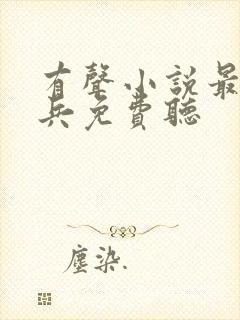 有聲小說最
兵免費聽
塵染.